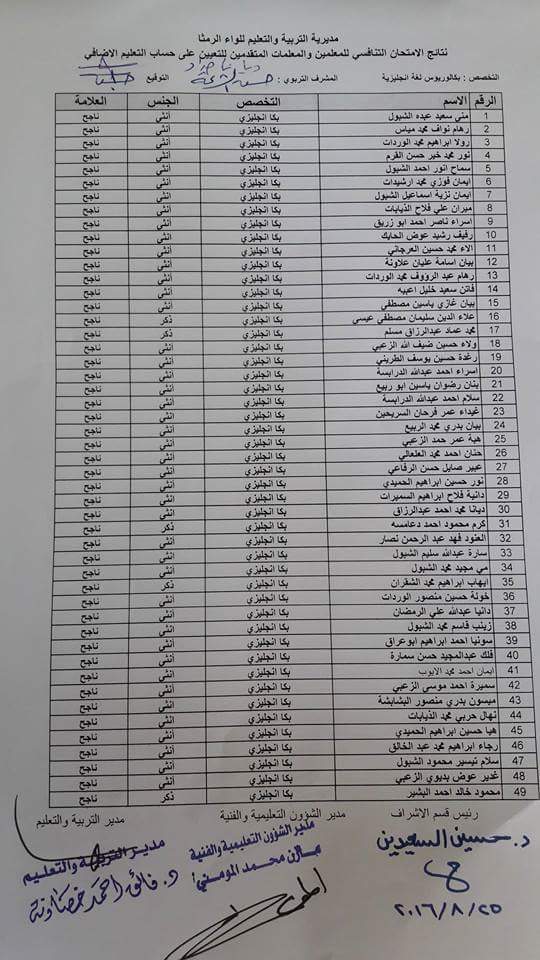 مديرية التربية والتعليم للواء الرمثا
نتائج الامتحان التنافسي للمعلمين والمعلمات المتقدمين للتعيين على حساب التعليم الاضافي
التخصص : بكالوريوس لغة انجليزية المشرف التربوي : التوقيع
الرقم الاسم التخصص الجنس العلامة
1 منى سعيد عبده الشبول بكا انجليزي أنثي ناجح
2 رهام نواف محمد مياس بكا انجليزي أنثي ناجح
3 رولا ابراهيم محمد الوردات بكا انجليزي أنثي ناجح
4 نور محمد خير حسن القرم بكا انجليزي أنثي ناجح
5 سماح انور احمد الشبول بكا انجليزي أنثي ناجح
6 ايمان فوزي محمد ارشيدات بكا انجليزي أنثي ناجح
7 ايمان نزية اسماعيل الشبول بكا انجليزي أنثي ناجح
8 ميران علي فلاح الذيابات بكا انجليزي أنثي ناجح
9 اسراء ناصر احمد ابو زريق بكا انجليزي أنثي ناجح
10 رفيف رشيد عوض الحايك بكا انجليزي أنثي ناجح
11 الاء محمد حسين العرجاني بكا انجليزي أنثي ناجح
12 بيان اسامة عليان علاونة بكا انجليزي أنثي ناجح
13 رهام عبد الرؤوف محمد الوردات بكا انجليزي أنثي ناجح
14 فاتن سعيد خليل اعبيه بكا انجليزي أنثي ناجح
15 بيان غازي ياسين مصطفى بكا انجليزي أنثي ناجح
16 علاء الدين سليمان مصطفى عيسى بكا انجليزي ذكر ناجح
17 محمد عماد عبدالرزاق مسلم بكا انجليزي ذكر ناجح
18 ولاء حسين ضيف الله الزعبي بكا انجليزي أنثي ناجح
19 رغدة حسين يوسف الطريني بكا انجليزي أنثي ناجح
20 اسراء احمد عبدالله الدرابسة بكا انجليزي أنثي ناجح
21 بنان رضوان ياسين ابو ربيع بكا انجليزي أنثي ناجح
22 سلام احمد عبدالله الدرابسة بكا انجليزي أنثي ناجح
23 غيداء عمر فرحان السريحين بكا انجليزي أنثي ناجح
24 بيان بدري محمد الربيع بكا انجليزي أنثي ناجح
25 هبة عمر حمد الزعبي بكا انجليزي أنثي ناجح
26 حنان احمد محمد العلعالي بكا انجليزي أنثي ناجح
27 عبير صايل حسن الرفاعي بكا انجليزي أنثي ناجح
28 نور حسين ابراهيم الحميدي بكا انجليزي أنثي ناجح
29 دانية فلاح ابراهيم السميرات بكا انجليزي أنثي ناجح
30 ديانا محمد احمد عبدالرزاق بكا انجليزي أنثي ناجح
31 كرم محمود احمد دعامسه بكا انجليزي ذكر ناجح
32 العنود فهد عبد الرحمن نصار بكا انجليزي أنثي ناجح
33 سارة عبدالله سليم الشبول بكا انجليزي أنثي ناجح
34 مي مجيد محمد الشبول بكا انجليزي أنثي ناجح
35 ايهاب ابراهيم محمد الشقران بكا انجليزي ذكر ناجح
36 خولة حسين منصور الوردات بكا انجليزي أنثي ناجح
37 دانيا عبدالله علي الرمضان بكا انجليزي أنثي ناجح
38 زينب قاسم محمد الشبول بكا انجليزي أنثي ناجح
39 سونيا احمد ابراهيم ابوعراق بكا انجليزي أنثي ناجح
40 فلك عبدالمجيد حسن سمارة بكا انجليزي أنثي ناجح
41 ايمان احمد محمد الايوب بكا انجليزي أنثي ناجح
42 سميرة احمد موسى الزعبي بكا انجليزي أنثي ناجح
43 ميسون بدري منصور البشابشة بكا انجليزي أنثي ناجح
44 نهال حربي محمد الذيابات بكا انجليزي أنثي ناجح
45 هيا حسين ابراهيم الحميدي بكا انجليزي أنثي ناجح
46 رجاء ابراهيم محمد عبد الخالق بكا انجليزي أنثي ناجح
47 سلام تيسير محمود الشبول بكا انجليزي أنثي ناجح
48 غدير عوض بديوي الزعبي بكا انجليزي أنثي ناجح
49 محمود خالد احمد البشير بكا انجليزي ذكر ناجح
رئيس قسم الاشراف مدير الشؤون التعليمية والفنية مدير التربية والتعليم
د. حسين السعيدين
٢٠١٦/٨/٢٥
مدير الشؤون التعليمية والفنية
مازن محمد المومني
مدير التربية والتعليم
د. فائق احمد خصاونة